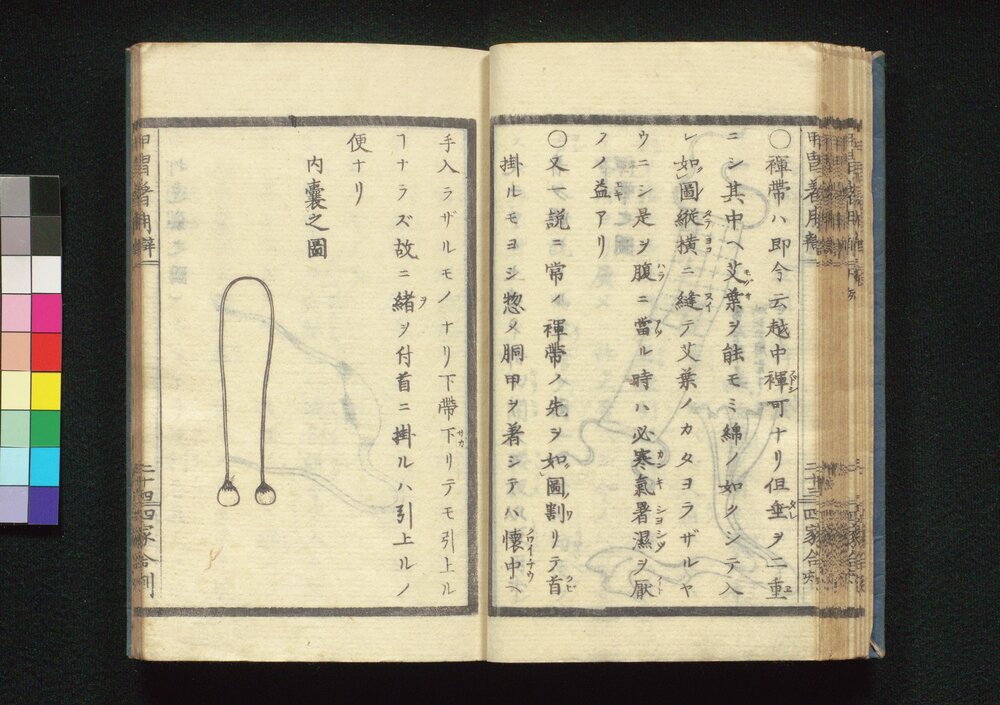 ○褌帶ハ即今云越中褌可ナリ但垂ヲ二重
ニシ其中ヘ艾葉ヲ能モミ綿ノ如クシテ入
レ如圖縱横ニ縫テ艾葉ノカタヨラザルヤ
ウニシ是ヲ腹ニ當ル時ハ必寒氣暑濕ヲ厭
フノ益アリ
○又一說ニ常ノ褌帶ノ先ヲ如圖割リテ首
掛ルモヨシ惣メ胴甲ヲ著シテハ懷中ヘ
手入ラザルモノナリ下帶下リテモ引上ル
ヿナラズ故ニ緒ヲ付首ニ掛ルハ引上ルノ
便ナリ
内囊之圖
甲冑著用辨
二十四
四家合刻